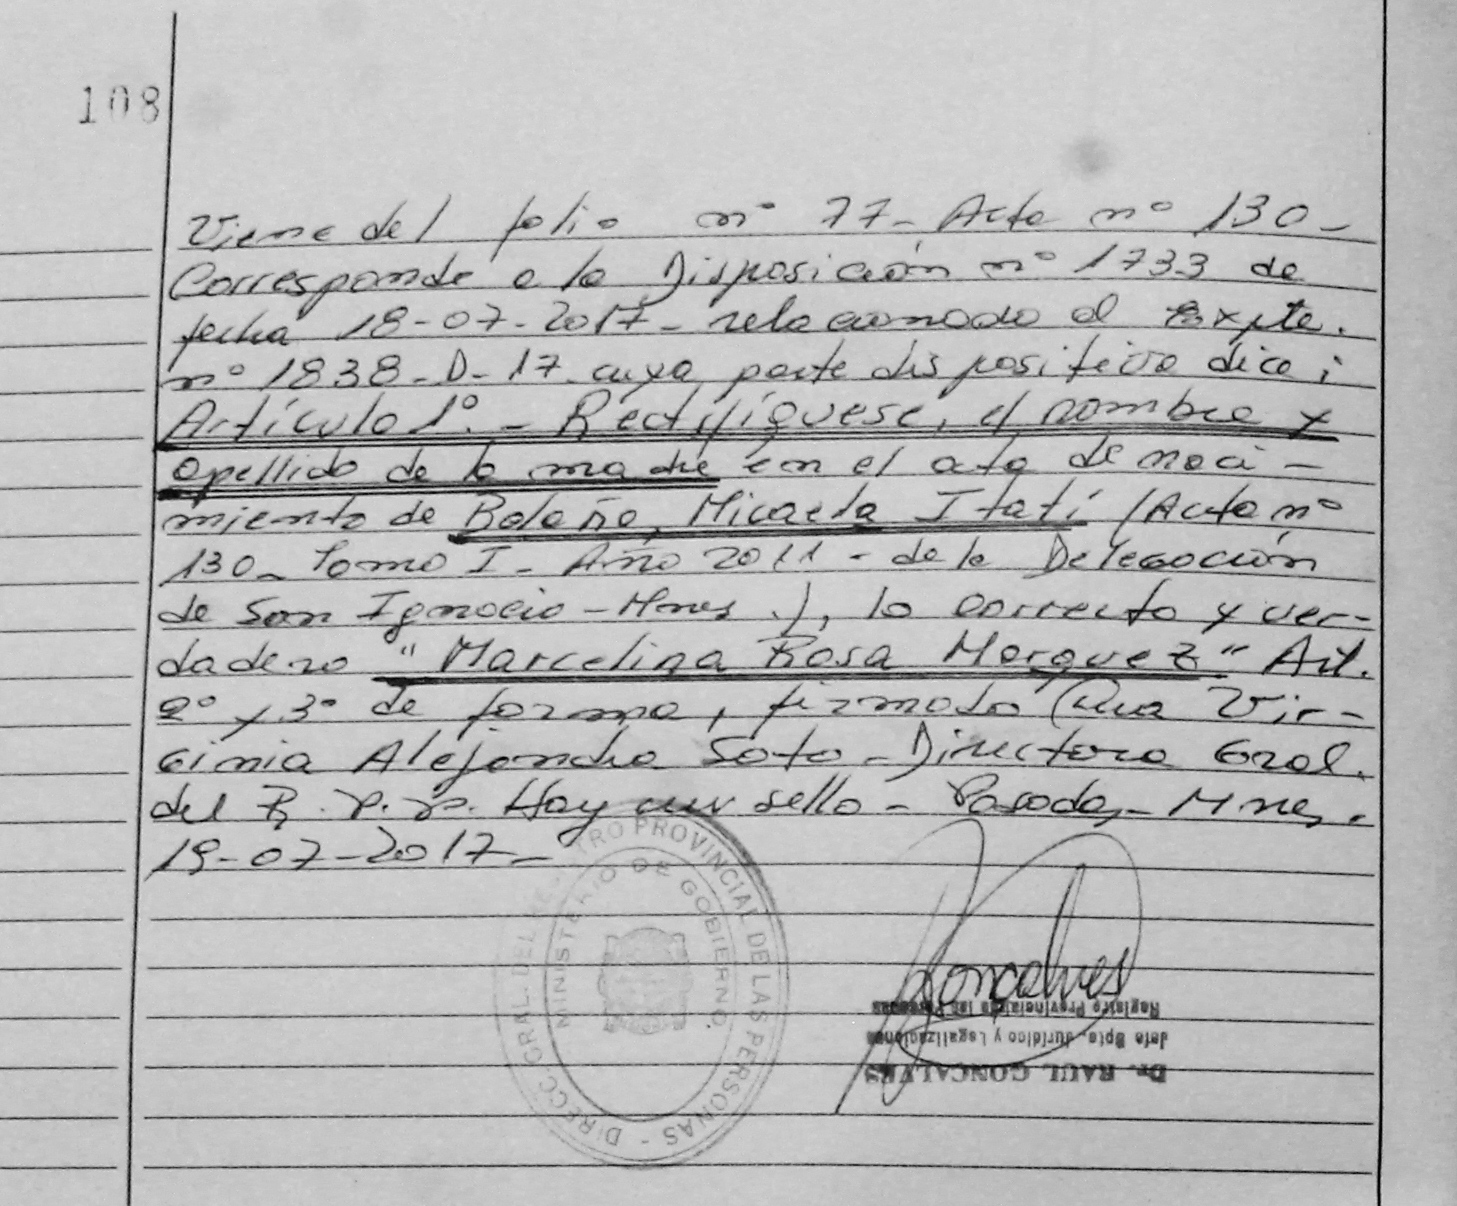 108
Viene del folio nº 77- Acta nº 130-
Corresponde a la Disposición nº 1733 de
fecha 18-07-2017- relacionado al Expte.
nº 1838-D-17 cuya parte dispositiva dice:
Artículo 1º.- Rectifíquese, el nombre y
apellido de la madre en el acta de naci-
miento de Bolaño, Micaela Itatí (Acta nº
130- Tomo I- Año 2011- de la Delegación
de San Ignacio-Mnes.), lo correcto y ver-
dadero "Marcelina Rosa Morguez" Art.
2º y 3º de forma, firmado Virginia
Alejandra Soto- Directora Gral.
del R.P.P. Hay un sello- Posadas- Mnes.
19-07-2017-
DIRECC. GRAL. DEL REGISTRO PROVINCIAL DE LAS PERSONAS -
MINISTERIO DE GOBIERNO
Goncalves
Dr. RAUL GONCALVES
Jefe Dpto. Jurídico y Legalizaciones
Registro Provincial de las Personas